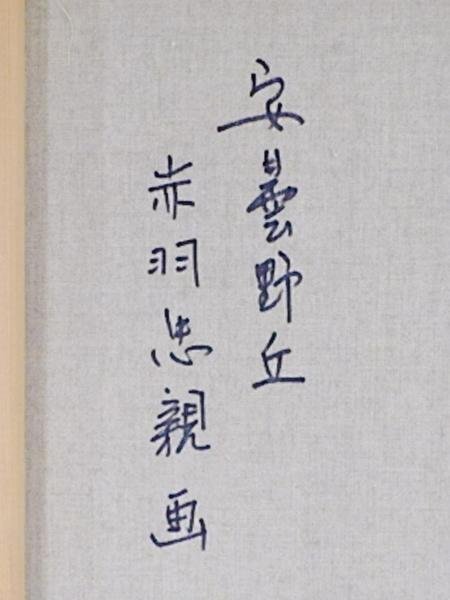 安曇野丘
赤羽忠親画